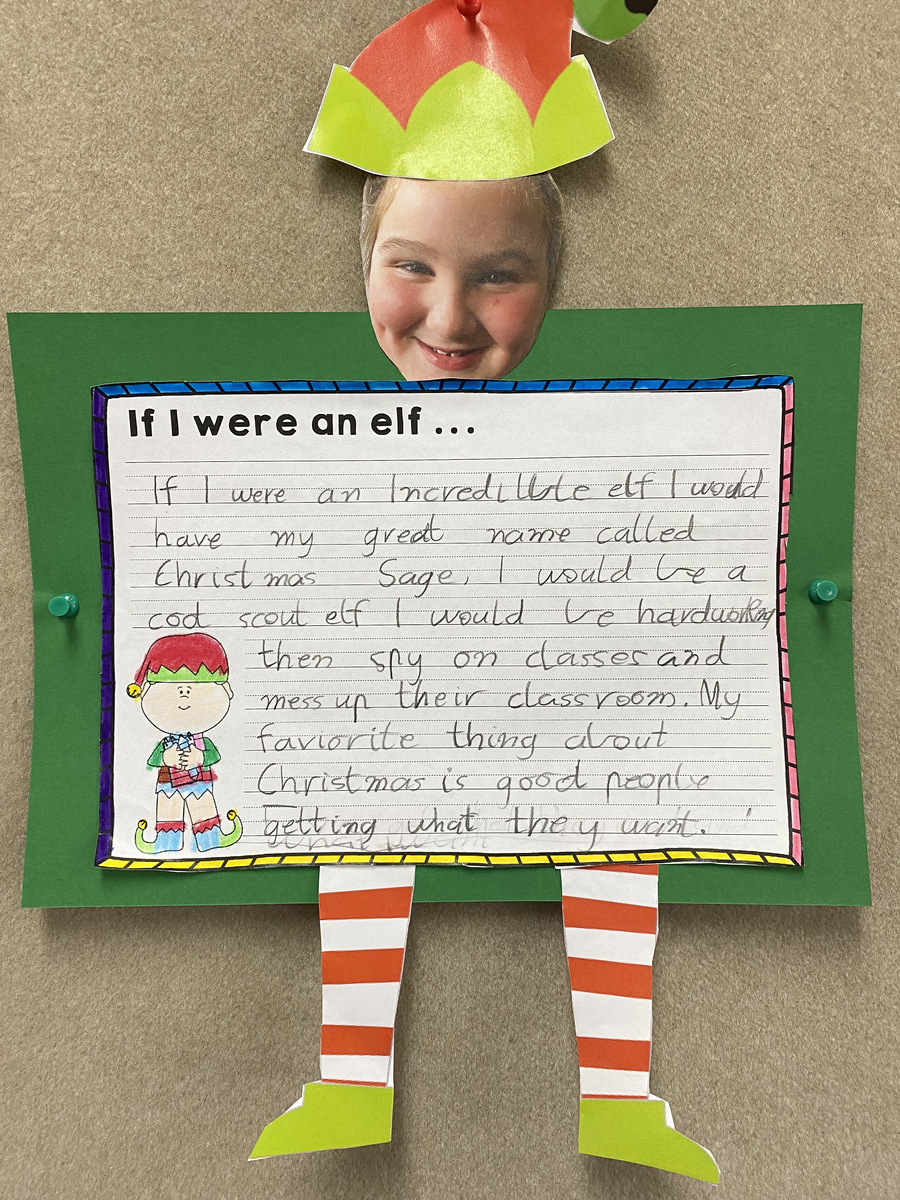 If I were an elf ...
If I were an Incredillble elf I would
have my great name called
Christmas Sage, I would be a
cod scout elf I would be hardworking
then spy on classes and
mess up their classroom. My
faviorite thing about
Christmas is good people
getting what they want.